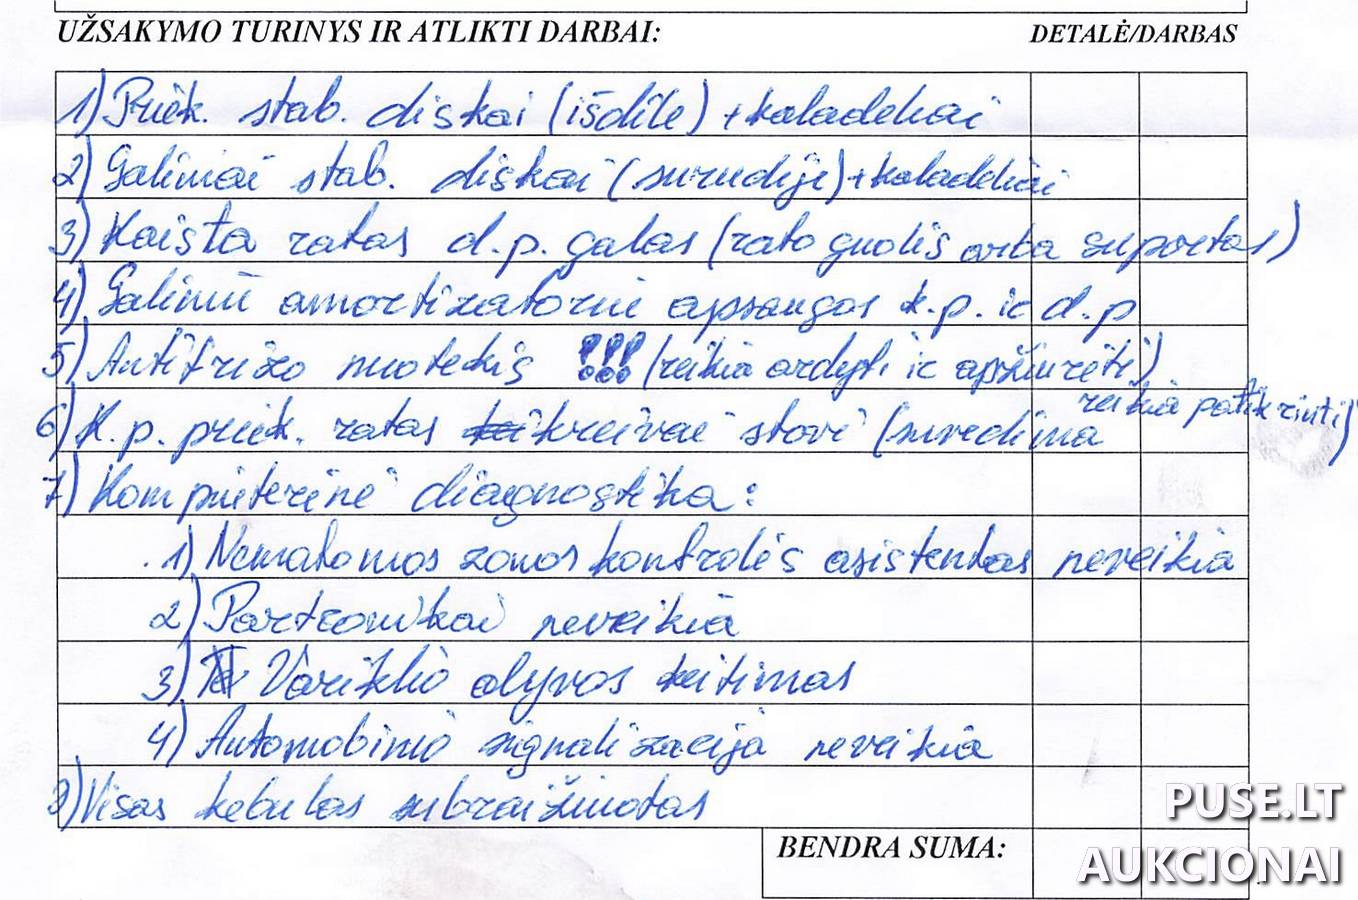 UŽSAKYMO TURINYS IR ATLIKTI DARBAI: DETALĖ/DARBAS
1) Priek. stab. diskai (išdilę) + kaladėkiai
2) Galiniai stab. diskai (surudiję) + kaladėkiai
3) Kaista ratas d.p. galas (rato guolis arba suportas)
4) Galinių amortizatorių apsaugos k.p. ir d.p
5) Antifrizo nuotekis !!! (reikia ardyti ir apžiūrėti)
6) K.p. priek. ratas kreivai stovi (suvedima reikia patikrinti)
7) Kompiuterinė diagnostika:
1) Nematomos zonos kontrolės asistentas neveikia
2) Partronikai neveikia
3) Variklio alyvos keitimas
4) Automobinio signalizacija neveikia
8) Visas kebulas subraižinotas
BENDRA SUMA:
PUSE.LT
AUKCIONAI